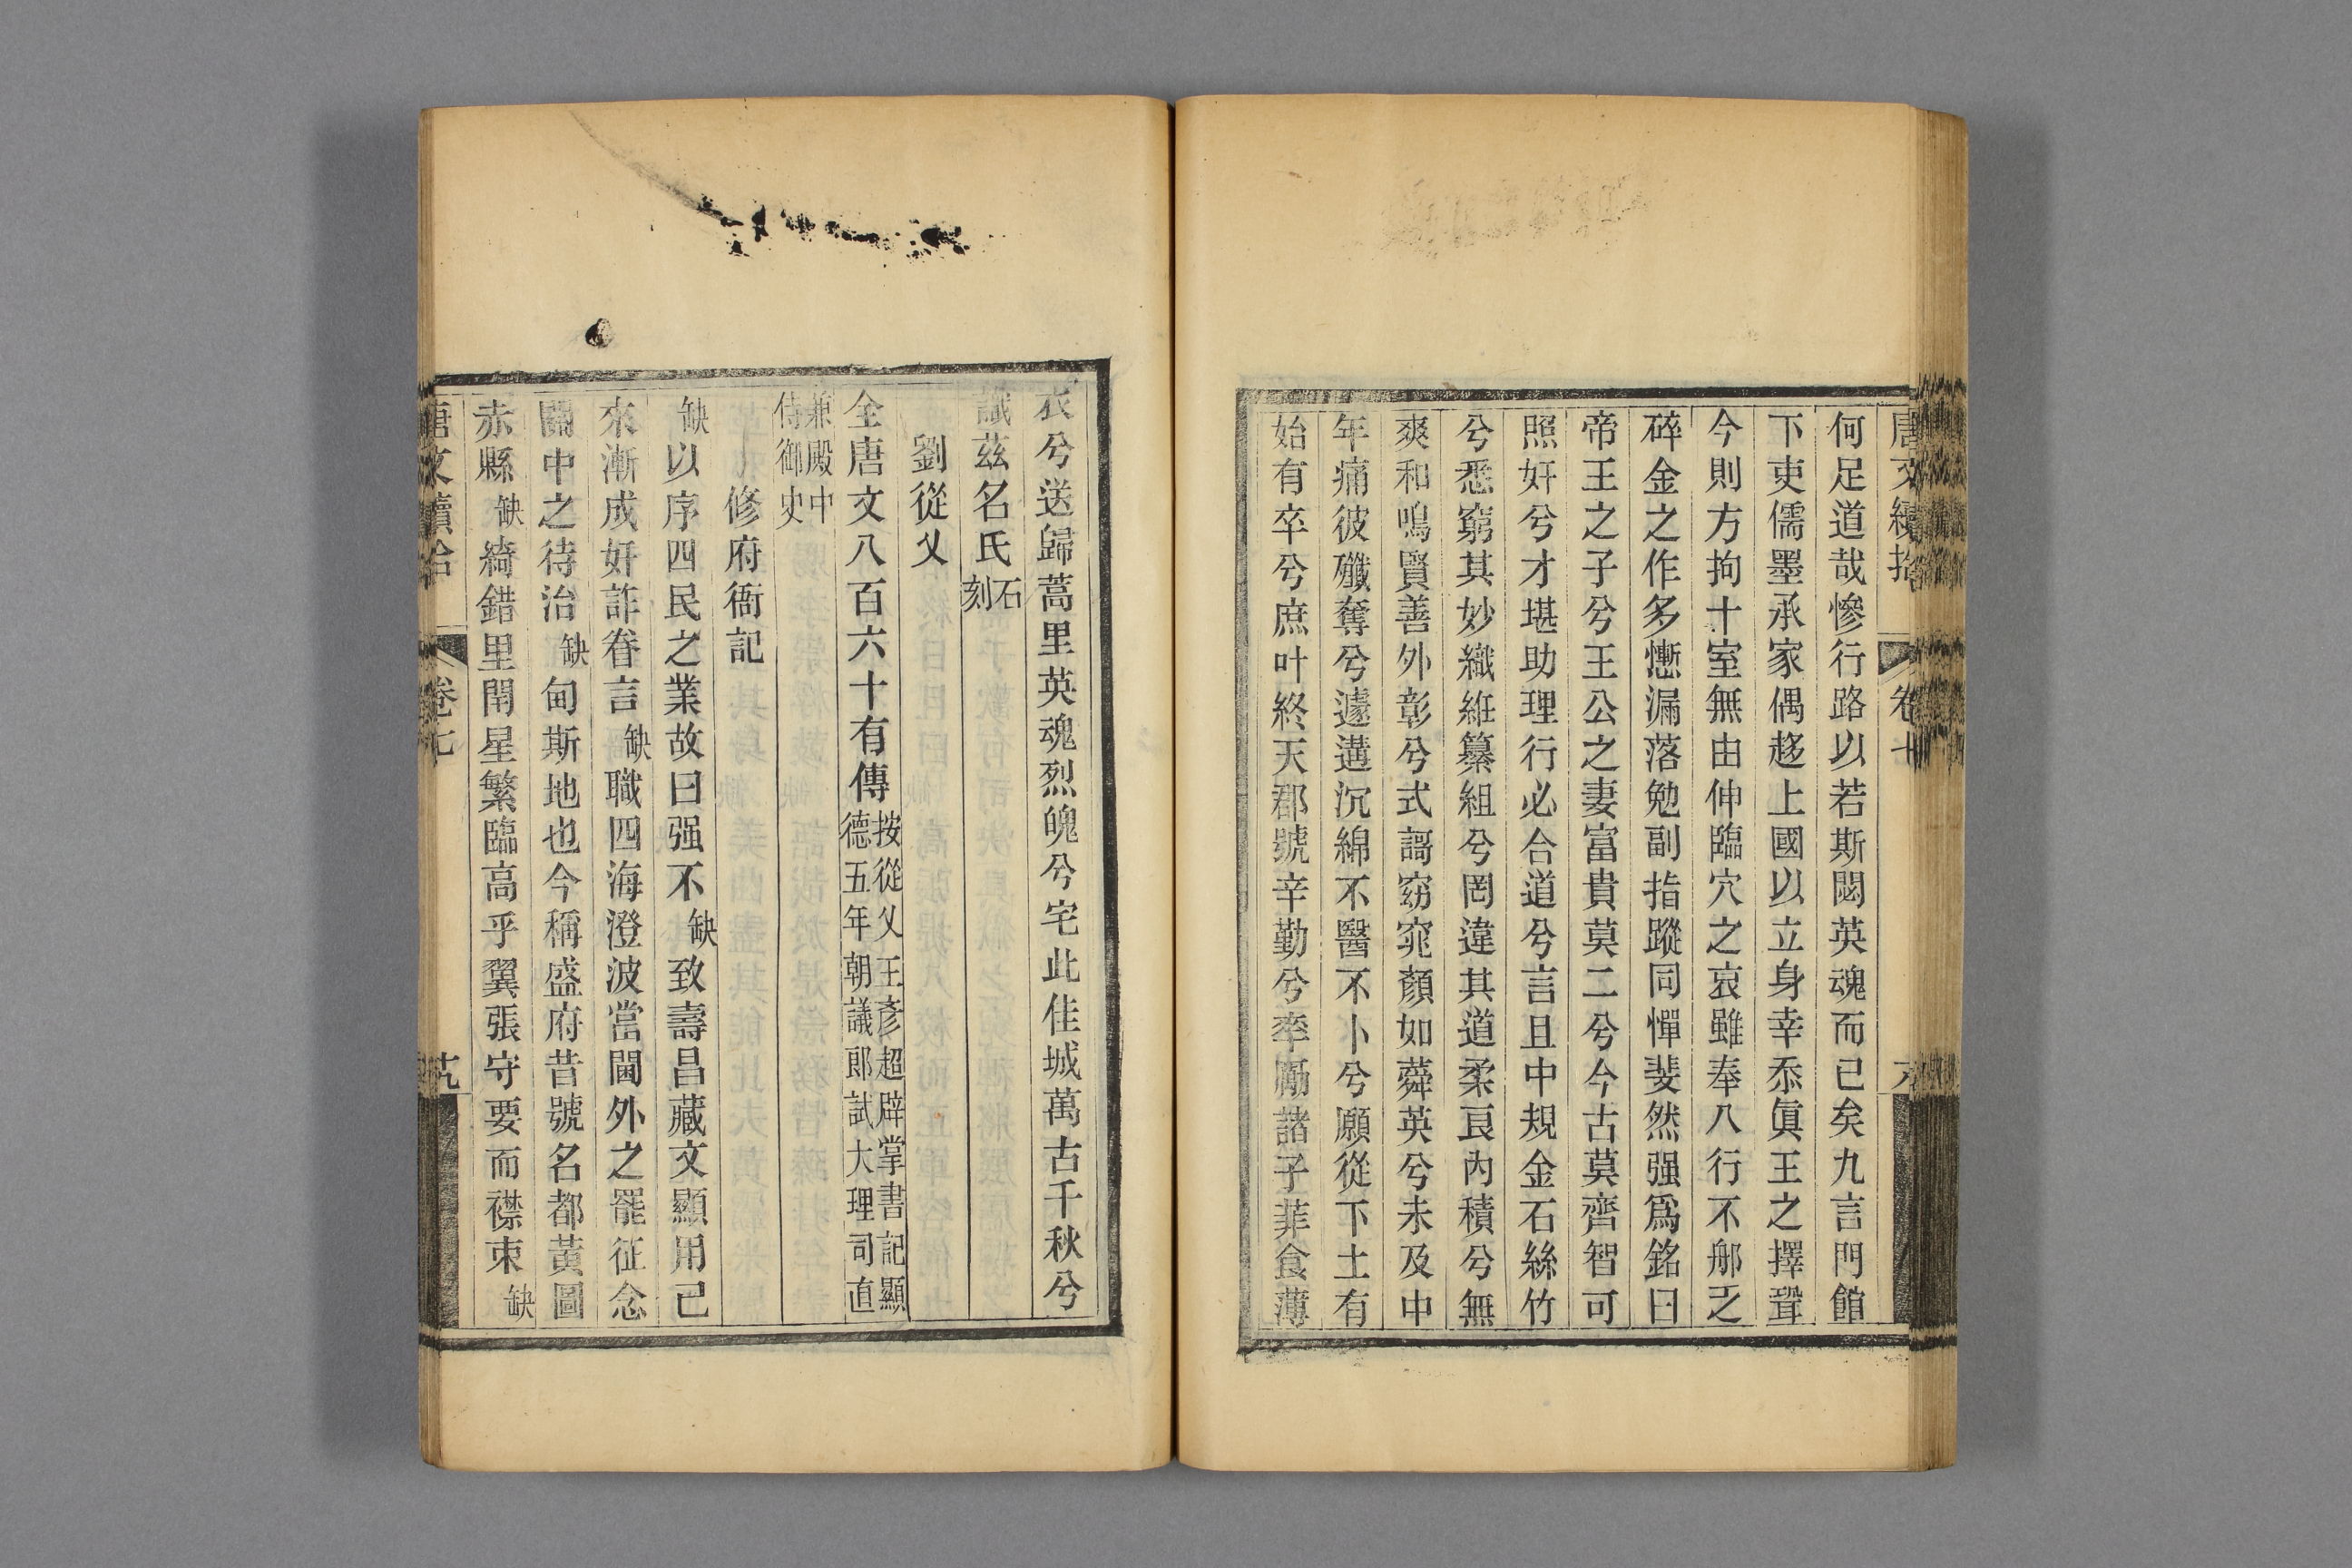 唐文續拾 卷十
何足道哉慘行路以若斯閟英魂而已矣九言門館
下吏儒墨承家偶趍上國以立身幸忝眞王之擇壻
今則方拘十室無由伸臨穴之哀雖奉八行不郍乏
碎金之作多慙漏落勉副指蹤同憚斐然强爲銘曰
帝王之子兮王公之妻富貴莫二兮今古莫齊智可
照奸兮才堪助理行必合道兮言且中規金石絲竹
兮悉窮其妙織絍纂組兮罔違其道柔莨內積兮無
爽和鳴賢善外彰兮式謌窈窕顏如蕣英兮未及中
年痛彼殲奪兮遽遘沉綿不醫不卜兮願從下土有
始有卒兮庶叶終天郡號辛勤兮率勵諸子菲食薄
衣兮送歸蒿里英魂烈魄兮宅此佳城萬古千秋兮
誌茲名氏石刻
劉從乂
全唐文八百六十有傳按從乂王彥超辟掌書記顯德五年朝議郎試大理司直
兼殿中侍御史
修府衙記
缺以序四民之業故曰强不缺致壽昌藏文顯用己
來漸成奸詐眷言缺職四海澄波當閫外之罷征念
關中之待治缺甸斯地也今稱盛府昔號名都黃圖
赤縣缺綺錯里閈星繁臨高乎翼張守要而襟束缺
唐文續拾 卷七